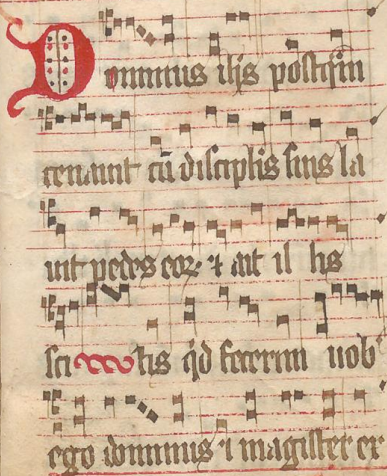 Dominus ihs postq̄m
cenauit cū disciplis suis la
uit pedes eoꝝ ⁊ ait il lis
sci tis qd fecerim uob
ego dominus ⁊ magister er